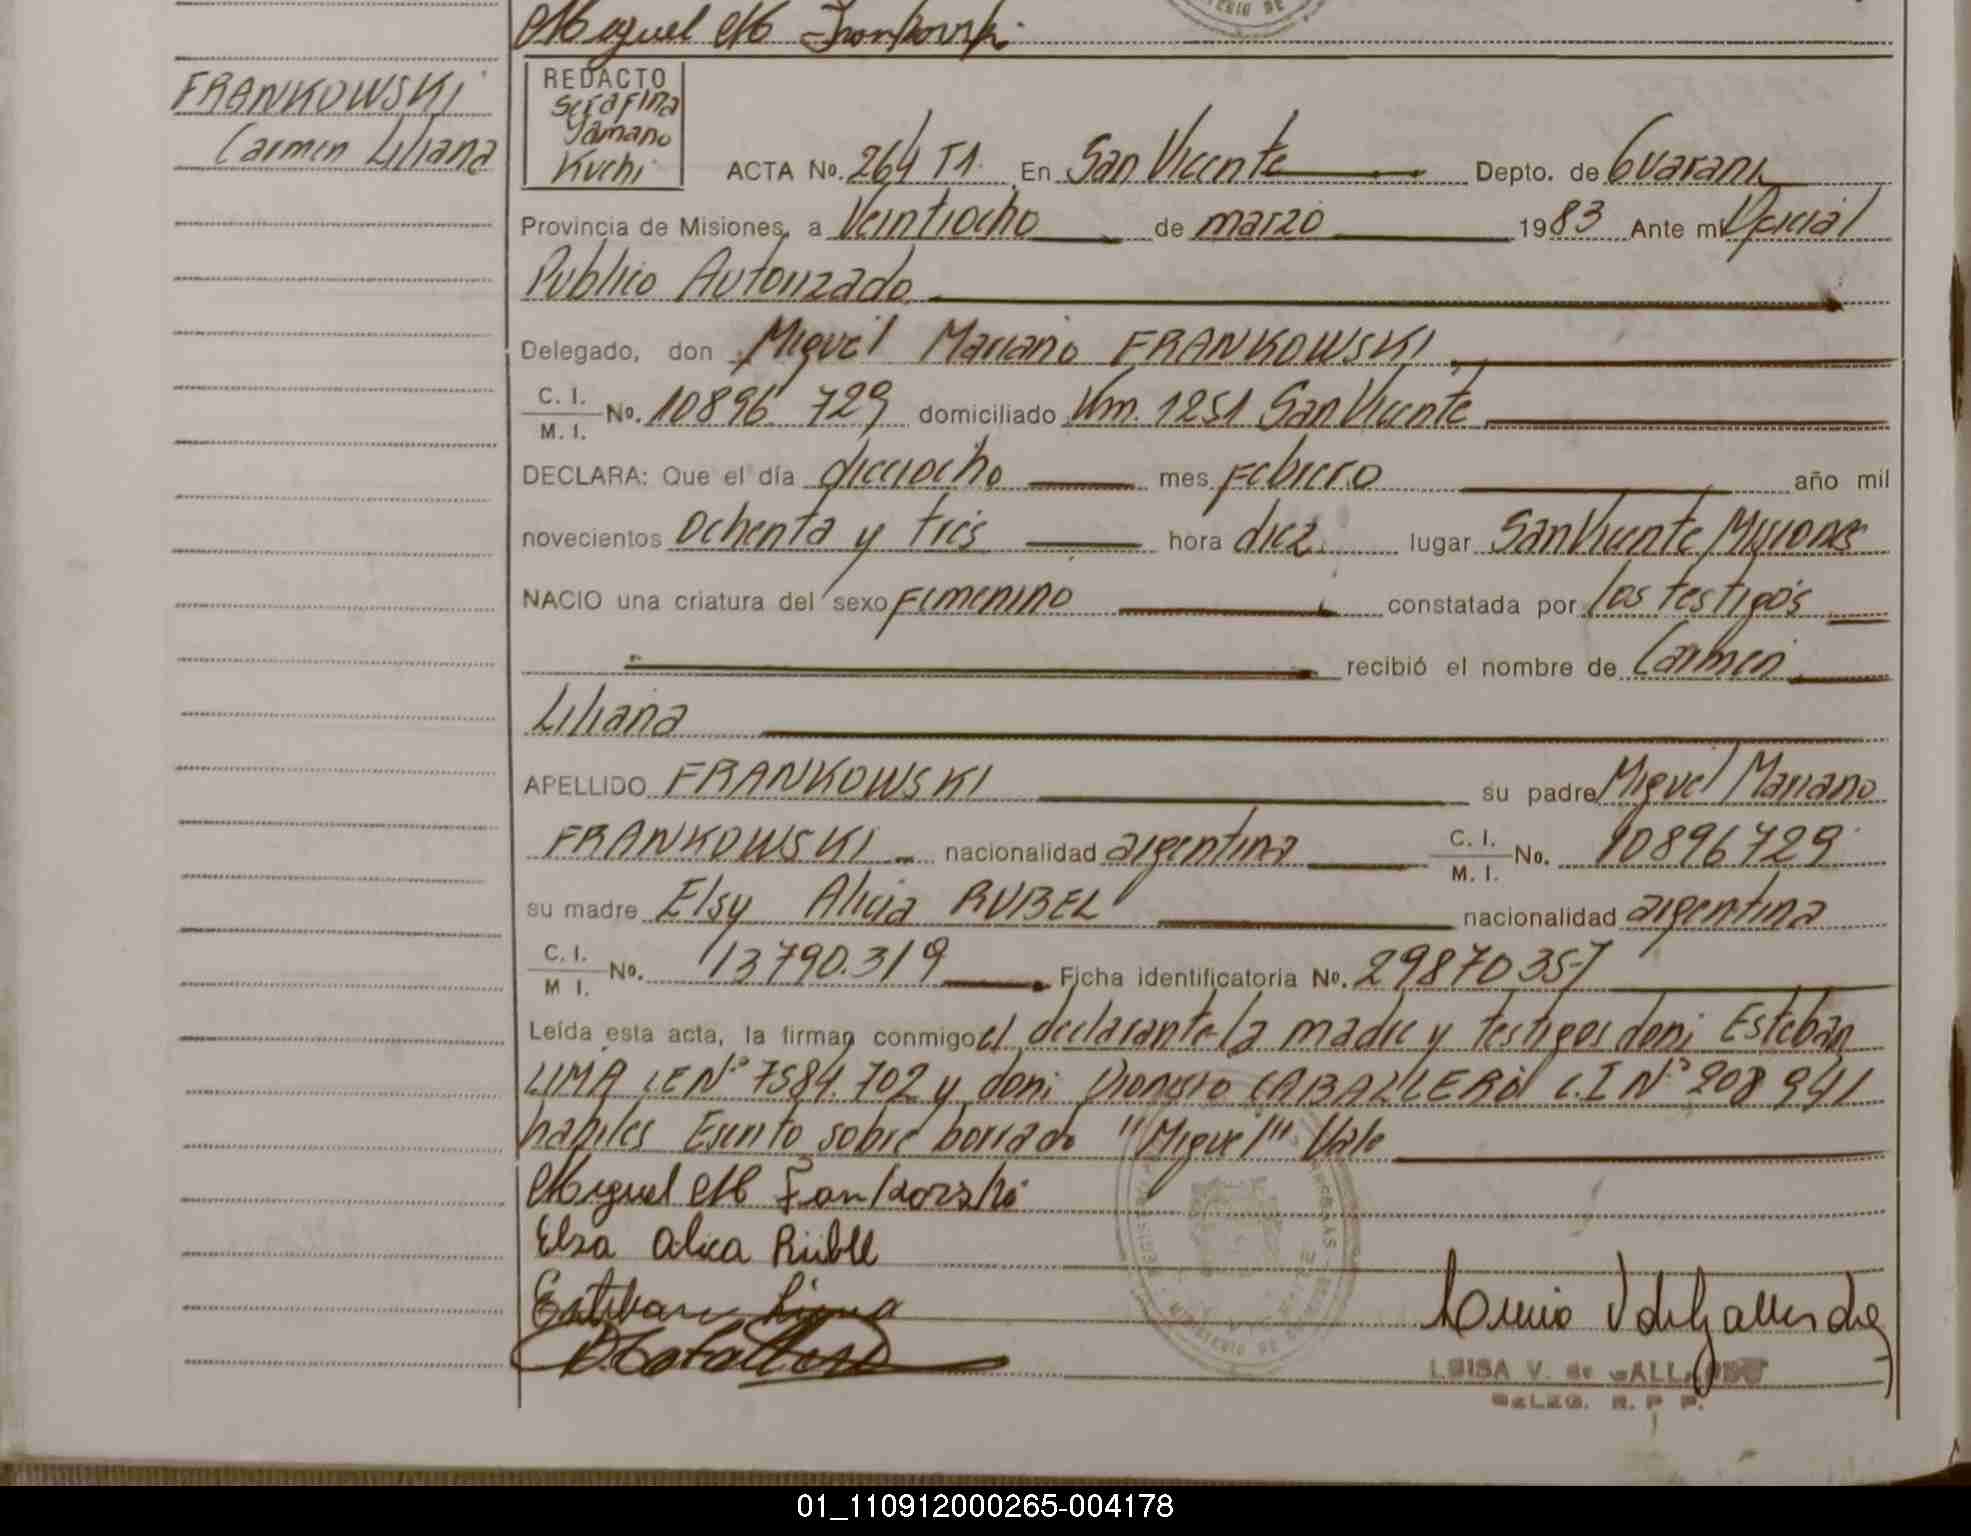 Miguel M Frankowski
FRANKOWSKI
Carmen Liliana
REDACTO
Serafina
Yamano
Kuchi
ACTA No. 264 T1. En San Vicente Depto. de Guarani
Provincia de Misiones, a Veintiocho de marzo 1983 Ante mi Oficial
Publico Autorizado
Delegado, don Miguel Mariano FRANKOWSKI
C. I.
M. I. No. 10896 729 domiciliado Km. 1251 San Vicente
DECLARA: Que el día dieciocho mes Febrero año mil
novecientos Ochenta y tres hora diez lugar San Vicente Misiones
NACIO una criatura del sexo Femenino constatada por los testigos
recibió el nombre de Carmen
Liliana
APELLIDO FRANKOWSKI su padre Miguel Mariano
FRANKOWSKI nacionalidad argentina C. I. M. I. No. 10896729
su madre Elsy Alicia RUBEL nacionalidad argentina
C. I. M I. No. 13790.319 Ficha identificatoria No. 29870357
Leída esta acta, la firman conmigo el declarante la madre y testigos doni Esteban
LIMA LE Nº 7584.702 y doni Dionisio CABALLERO C.I Nº 208 941
habiles Escrito sobre borrado "Miguel" Vale
Miguel M Frankowski
Elsa Alica Rubel
Esteban Lima
D. Caballero
LUISA V. de GALLARDO
DELEG. R. P P.
01_110912000265-004178